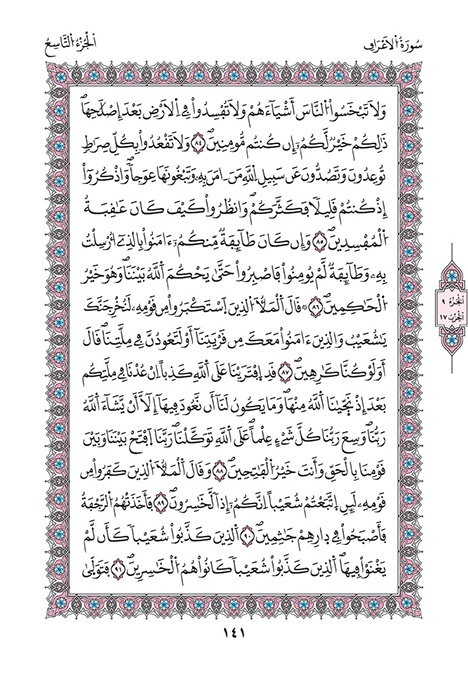 سُورَةُ الْأَعْرَافِ
الْجُزْءُ التَّاسِعُ
وَلَا تَبْخَسُوا۟ النَّاسَ أَشْيَآءَهُمْ وَلَا تُفْسِدُوا۟ فِي اِلْأَرْضِ بَعْدَ إِصْلَٰحِهَا
ذَٰلِكُمْ خَيْرٌ لَّكُمْ إِن كُنتُم مُّومِنِينَ ٨٤ وَلَا تَقْعُدُوا۟ بِكُلِّ صِرَٰطٍ
تُوعِدُونَ وَتَصُدُّونَ عَن سَبِيلِ اِللَّهِ مَنَ اٰمَنَ بِهِۦ وَتَبْغُونَهَا عِوَجاً وَاذْكُرُوٓا۟
إِذْ كُنتُمْ قَلِيلاً فَكَثَّرَكُمْ وَانظُرُوا۟ كَيْفَ كَانَ عَٰقِبَةُ
اُلْمُفْسِدِينَ ٨٥ وَإِن كَانَ طَآئِفَةٌ مِّنكُمُ ءَامَنُوا۟ بِالَّذِےٓ أُرْسِلْتُ
بِهِۦ وَطَآئِفَةٌ لَّمْ يُومِنُوا۟ فَاصْبِرُوا۟ حَتَّىٰ يَحْكُمَ اَللَّهُ بَيْنَنَا وَهُوَ خَيْرُ
اُلْحَٰكِمِينَ ٨٦ قَالَ اَلْمَلَأُ اُلذِينَ اَسْتَكْبَرُوا۟ مِن قَوْمِهِۦ لَنُخْرِجَنَّكَ
يَٰشُعَيْبُ وَالذِينَ ءَامَنُوا۟ مَعَكَ مِن قَرْيَتِنَآ أَوْ لَتَعُودُنَّ فِي مِلَّتِنَا قَالَ
أَوَلَوْ كُنَّا كَٰرِهِينَ ٨٧ قَدِ اِفْتَرَيْنَا عَلَى اَللَّهِ كَذِباً اِنْ عُدْنَا فِي مِلَّتِكُم
بَعْدَ إِذْ نَجَّيٰنَا اَللَّهُ مِنْهَا وَمَا يَكُونُ لَنَآ أَن نَّعُودَ فِيهَآ إِلَّآ أَنْ يَّشَآءَ اَللَّهُ
رَبُّنَا وَسِعَ رَبُّنَا كُلَّ شَےْءٍ عِلْماً عَلَى اَللَّهِ تَوَكَّلْنَا رَبَّنَا اَفْتَحْ بَيْنَنَا وَبَيْنَ
قَوْمِنَا بِالْحَقِّ وَأَنتَ خَيْرُ اُلْفَٰتِحِينَ ٨٨ وَقَالَ اَلْمَلَأُ اُلذِينَ كَفَرُوا۟ مِن
قَوْمِهِۦ لَئِنِ اِتَّبَعْتُمْ شُعَيْباً اِنَّكُمُۥٓ إِذاً لَّخَٰسِرُونَ ٨٩ فَأَخَذَتْهُمُ اُلرَّجْفَةُ
فَأَصْبَحُوا۟ فِي دِارِهِمْ جَٰثِمِينَ ٩٠ اَلذِينَ كَذَّبُوا۟ شُعَيْباً كَأَن لَّمْ
يَغْنَوْا۟ فِيهَا اَلذِينَ كَذَّبُوا۟ شُعَيْباً كَانُوا۟ هُمُ اُلْخَٰسِرِينَ ٩١ فَتَوَلَّىٰ
الجزء ٩
الحزب ١٧
١٤١